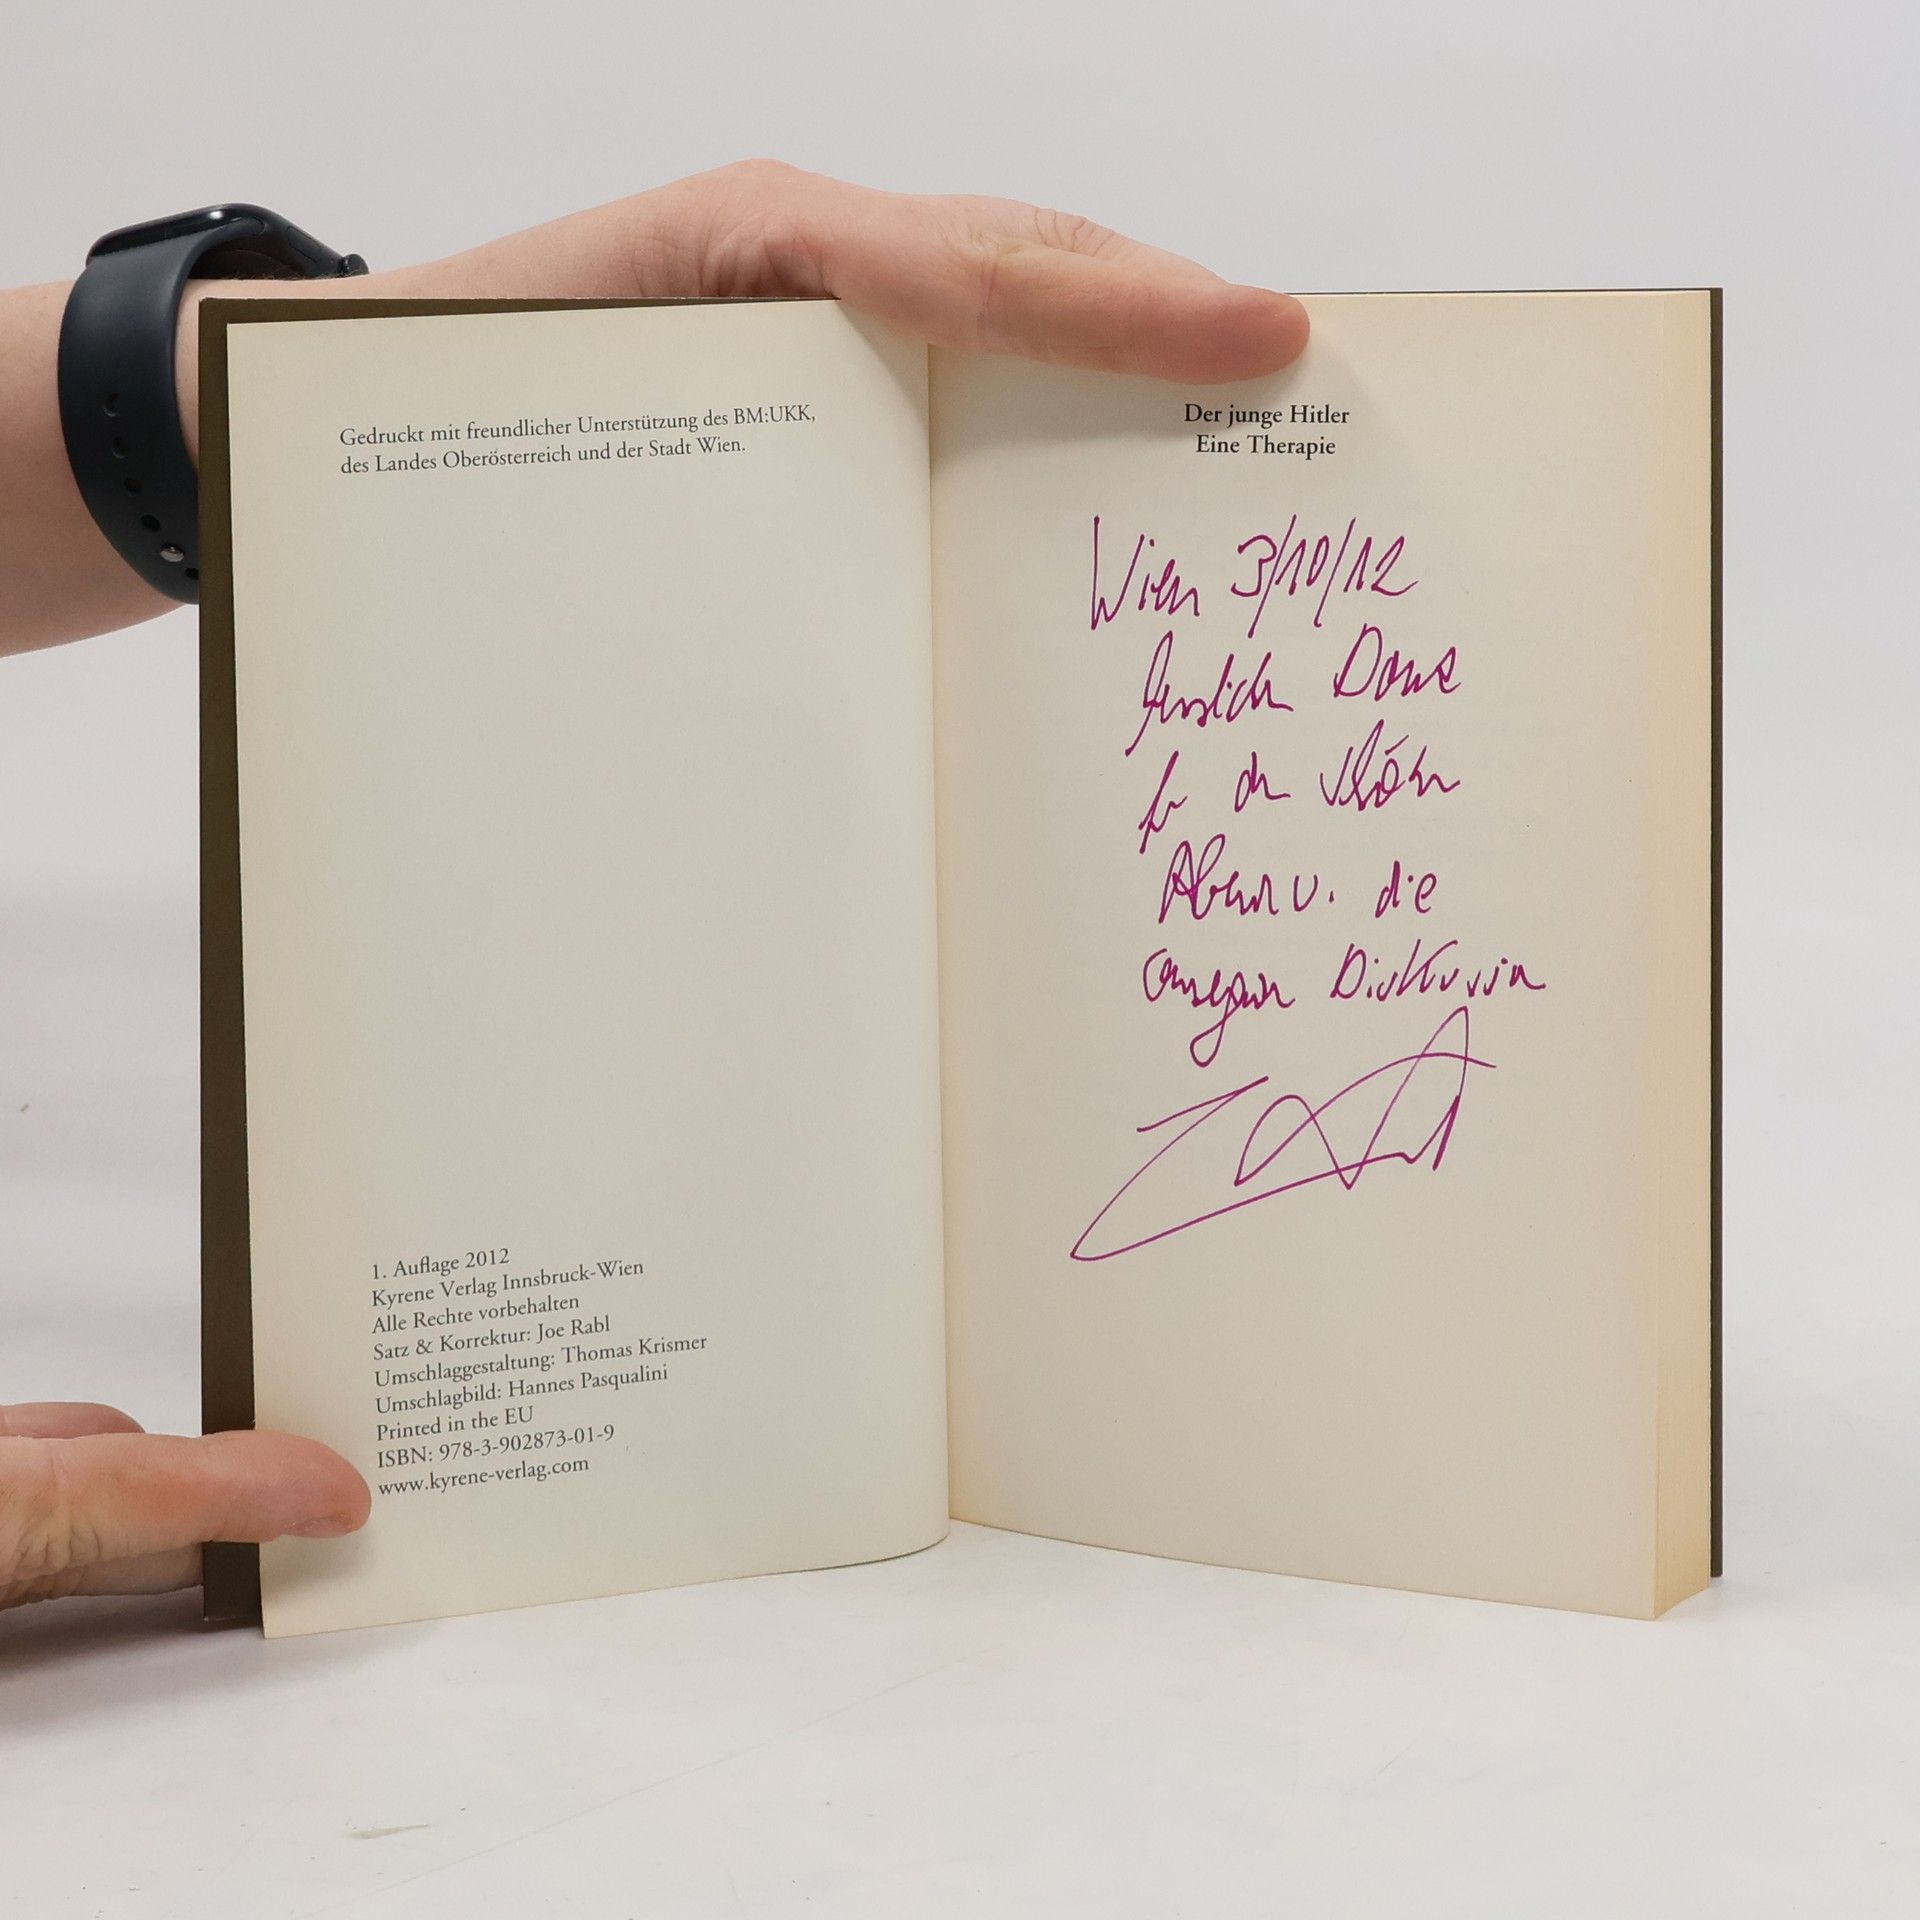 Gedruckt mit freundlicher Unterstützung des BM:UKK,
des Landes Oberösterreich und der Stadt Wien.
1. Auflage 2012
Kyrene Verlag Innsbruck-Wien
Alle Rechte vorbehalten
Satz & Korrektur: Joe Rabl
Umschlaggestaltung: Thomas Krismer
Umschlagbild: Hannes Pasqualini
Printed in the EU
ISBN: 978-3-902873-01-9
www.kyrene-verlag.com
Der junge Hitler
Eine Therapie
Wien 3/10/12
Herzlich Dank
für den schönen
Abend u. die
Diskussion